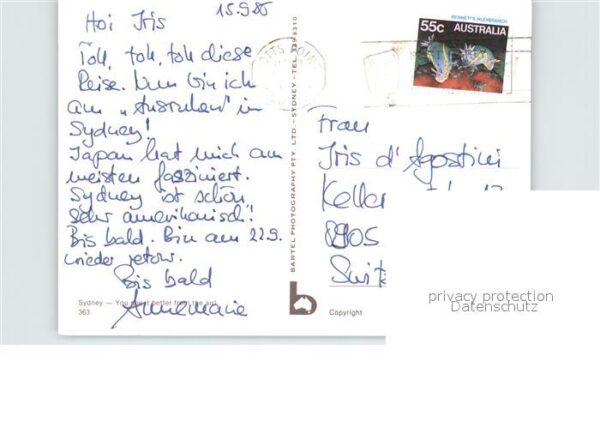 Hoi Iris 15.9.85
Toll, toll, toll diese
Reise. Nun bin ich
am "Ausruhen" in
Sydney!
Japan hat mich am
meisten fasziniert.
Sydney ist schön,
sehr amerikanisch!
Bis bald. Bin am 22.9.
wieder retour.
Bis bald
Annemarie
Sydney — You
better from the air!
363
BARTEL PHOTOGRAPHY PTY. LTD. - SYDNEY - TEL.
b
Copyright
BENNETT'S NUDIBRANCH
55c AUSTRALIA
Frau
Iris d'Agostini
Keller
8905
Suit
privacy protection
Datenschutz